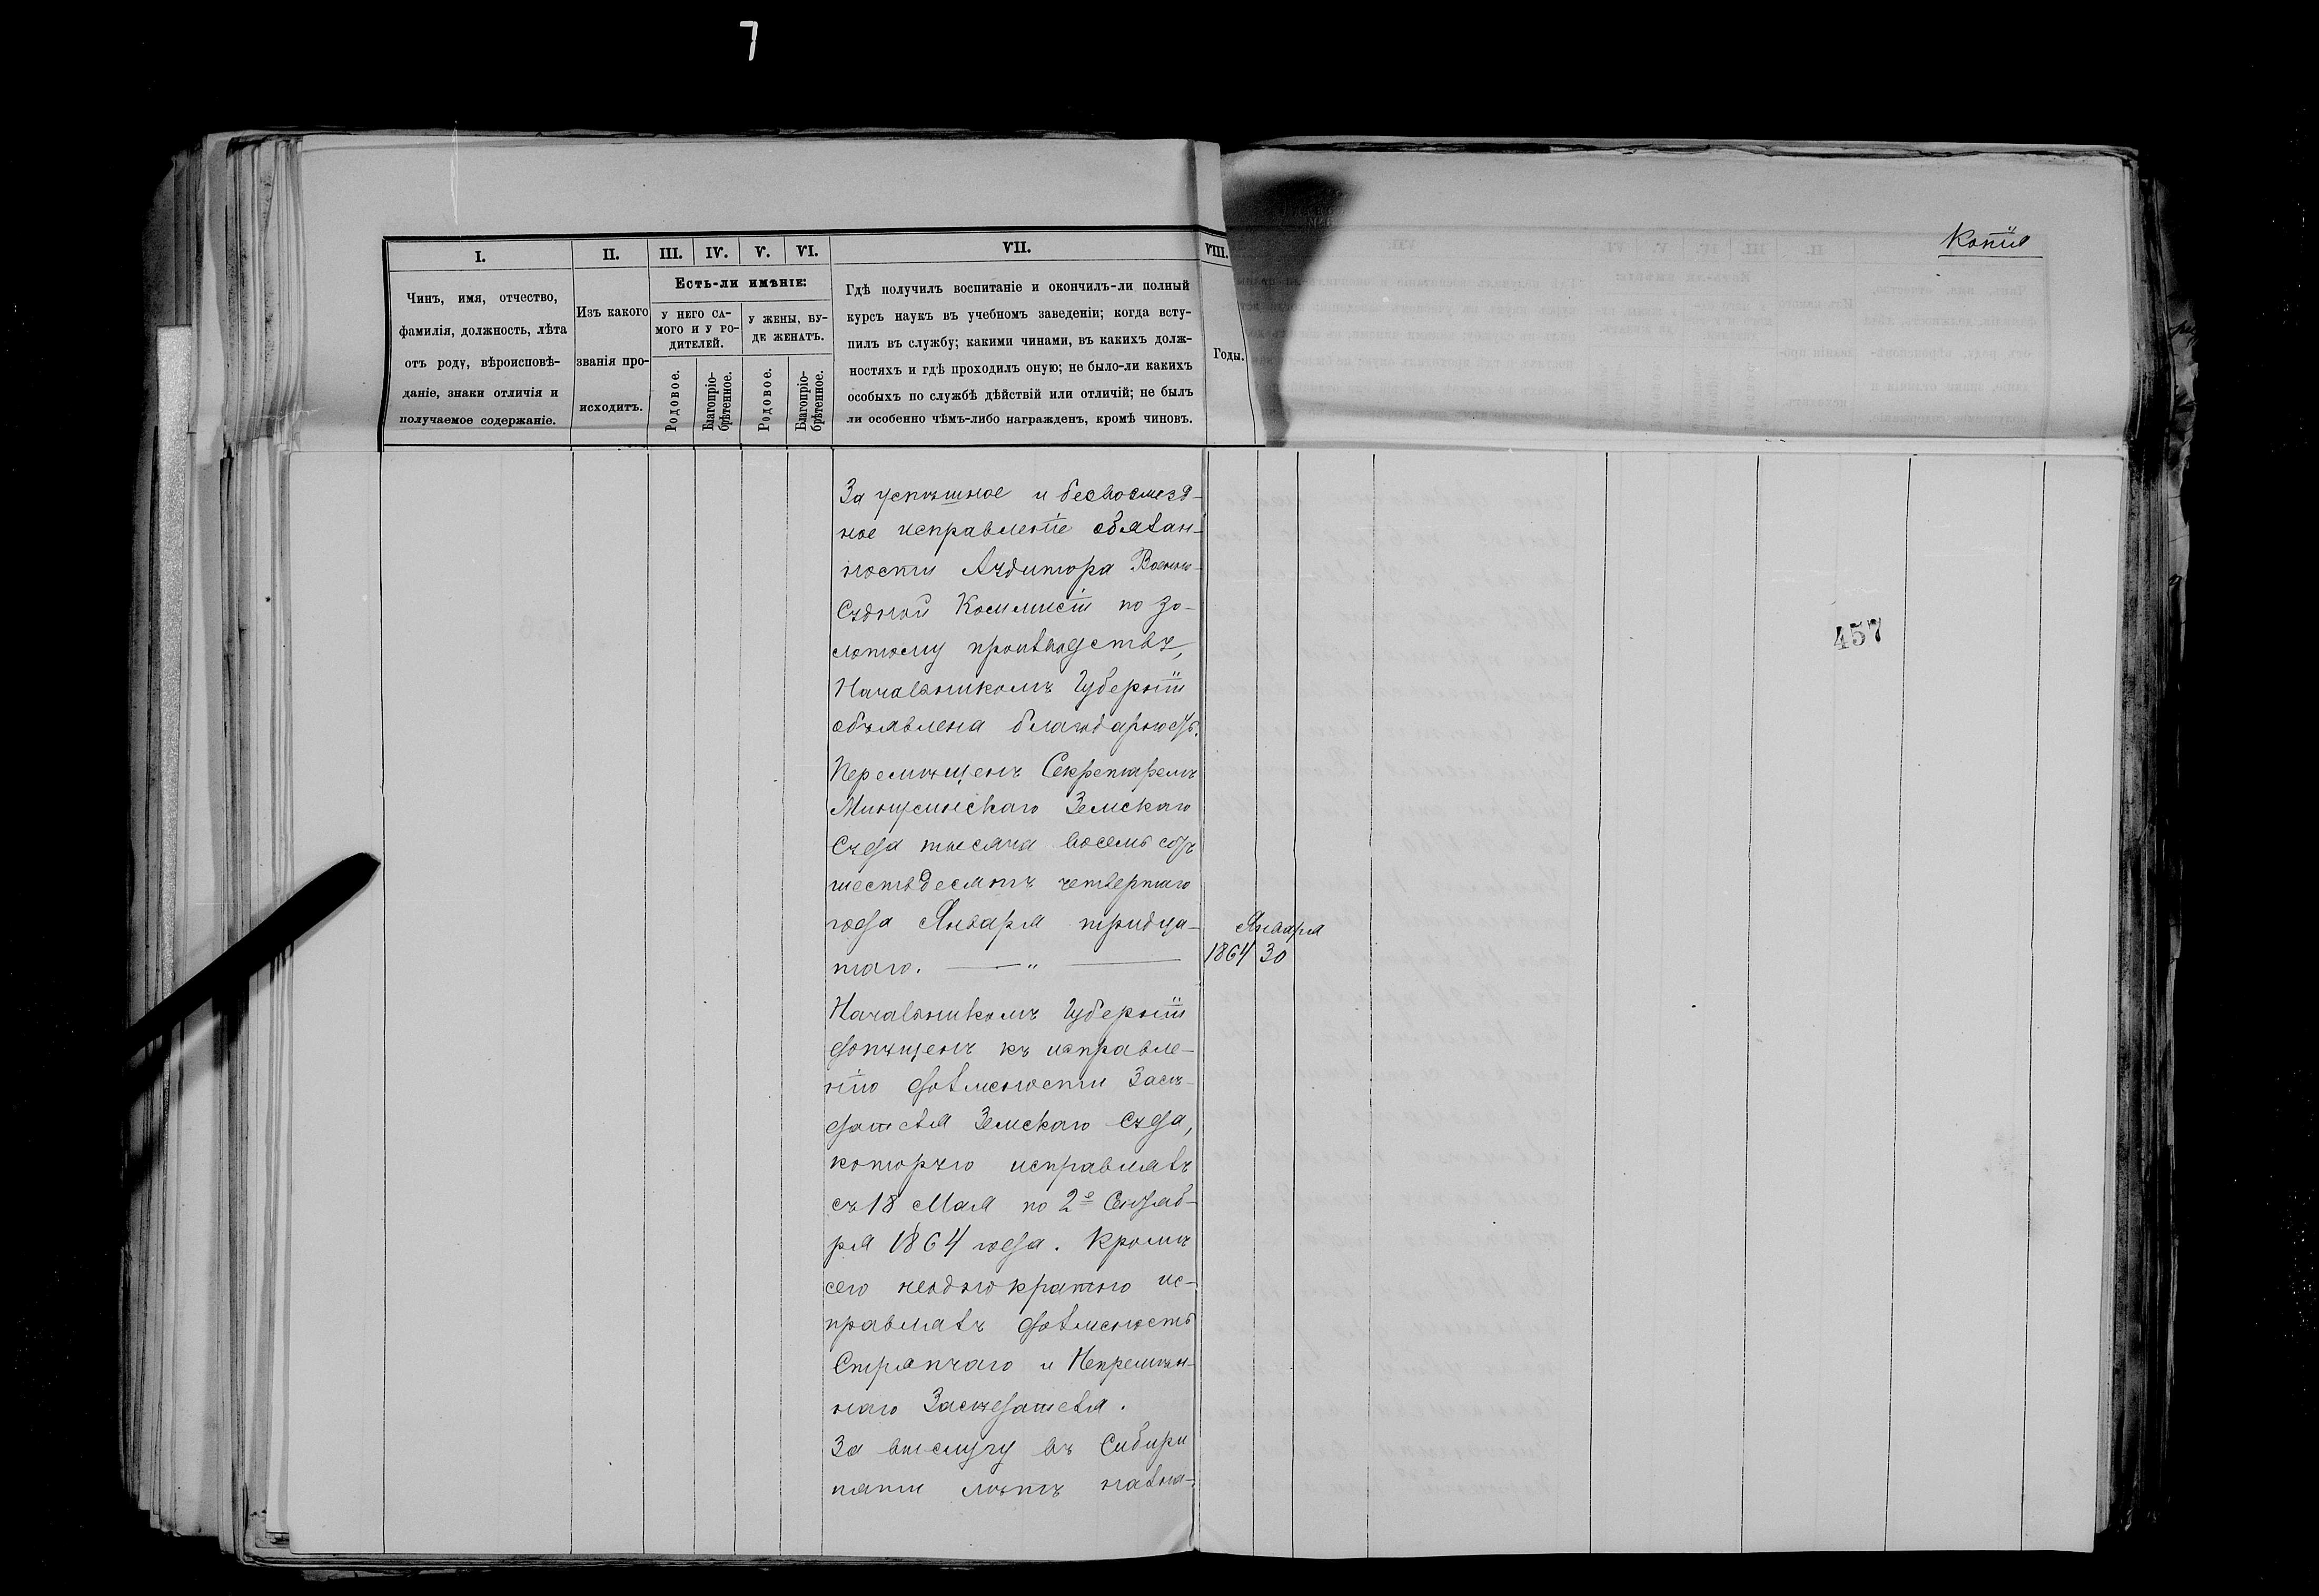 7
Копія
I.
Чинъ, имя, отчество,
фамилія, должность, лѣта
отъ роду, вѣроисповѣ-
даніе, знаки отличія и
получаемое содержаніе.
II.
Изъ какого
званія про-
исходитъ.
III. IV. V. VI.
Есть-ли имѣніе:
У НЕГО СА-
МОГО И У РО-
ДИТЕЛЕЙ.
У ЖЕНЫ, БУ-
ДЕ ЖЕНАТЪ.
Родовое.
Благопріо-
брѣтенное.
Родовое.
Благопріо-
брѣтенное.
VII.
Гдѣ получилъ воспитаніе и окончилъ-ли полный
курсъ наукъ въ учебномъ заведеніи; когда всту-
пилъ въ службу; какими чинами, въ какихъ долж-
ностяхъ и гдѣ проходилъ оную; не было-ли какихъ
особыхъ по службѣ дѣйствій или отличій; не былъ
ли особенно чѣмъ-либо награжденъ, кромѣ чиновъ.
VIII.
Годы.
За успѣшное и безвозмезд-
ное исправленіе обязан-
ности Аудитора Военно-
Судной Коммисіи по зо-
лотому производству,
Начальникомъ Губерніи
объявлена благодарность.
Перемѣщенъ Секретаремъ
Минусинскаго Земскаго
Суда тысяча восемь сотъ
шестьдесятъ четвертаго
года Января тридца-
таго. — " —
Января
1864 30
Начальникомъ Губерніи
допущенъ къ исправле-
нію должности Засѣ-
дателя Земскаго Суда,
которую исправлялъ
съ 18 Мая по 2е Октяб-
ря 1864 года. Кромѣ
сего неоднократно ис-
правлялъ должность
Стряпчаго и Непремѣн-
наго Засѣдателя.
За выслугу въ Сибири
пяти лѣтъ назна-
457